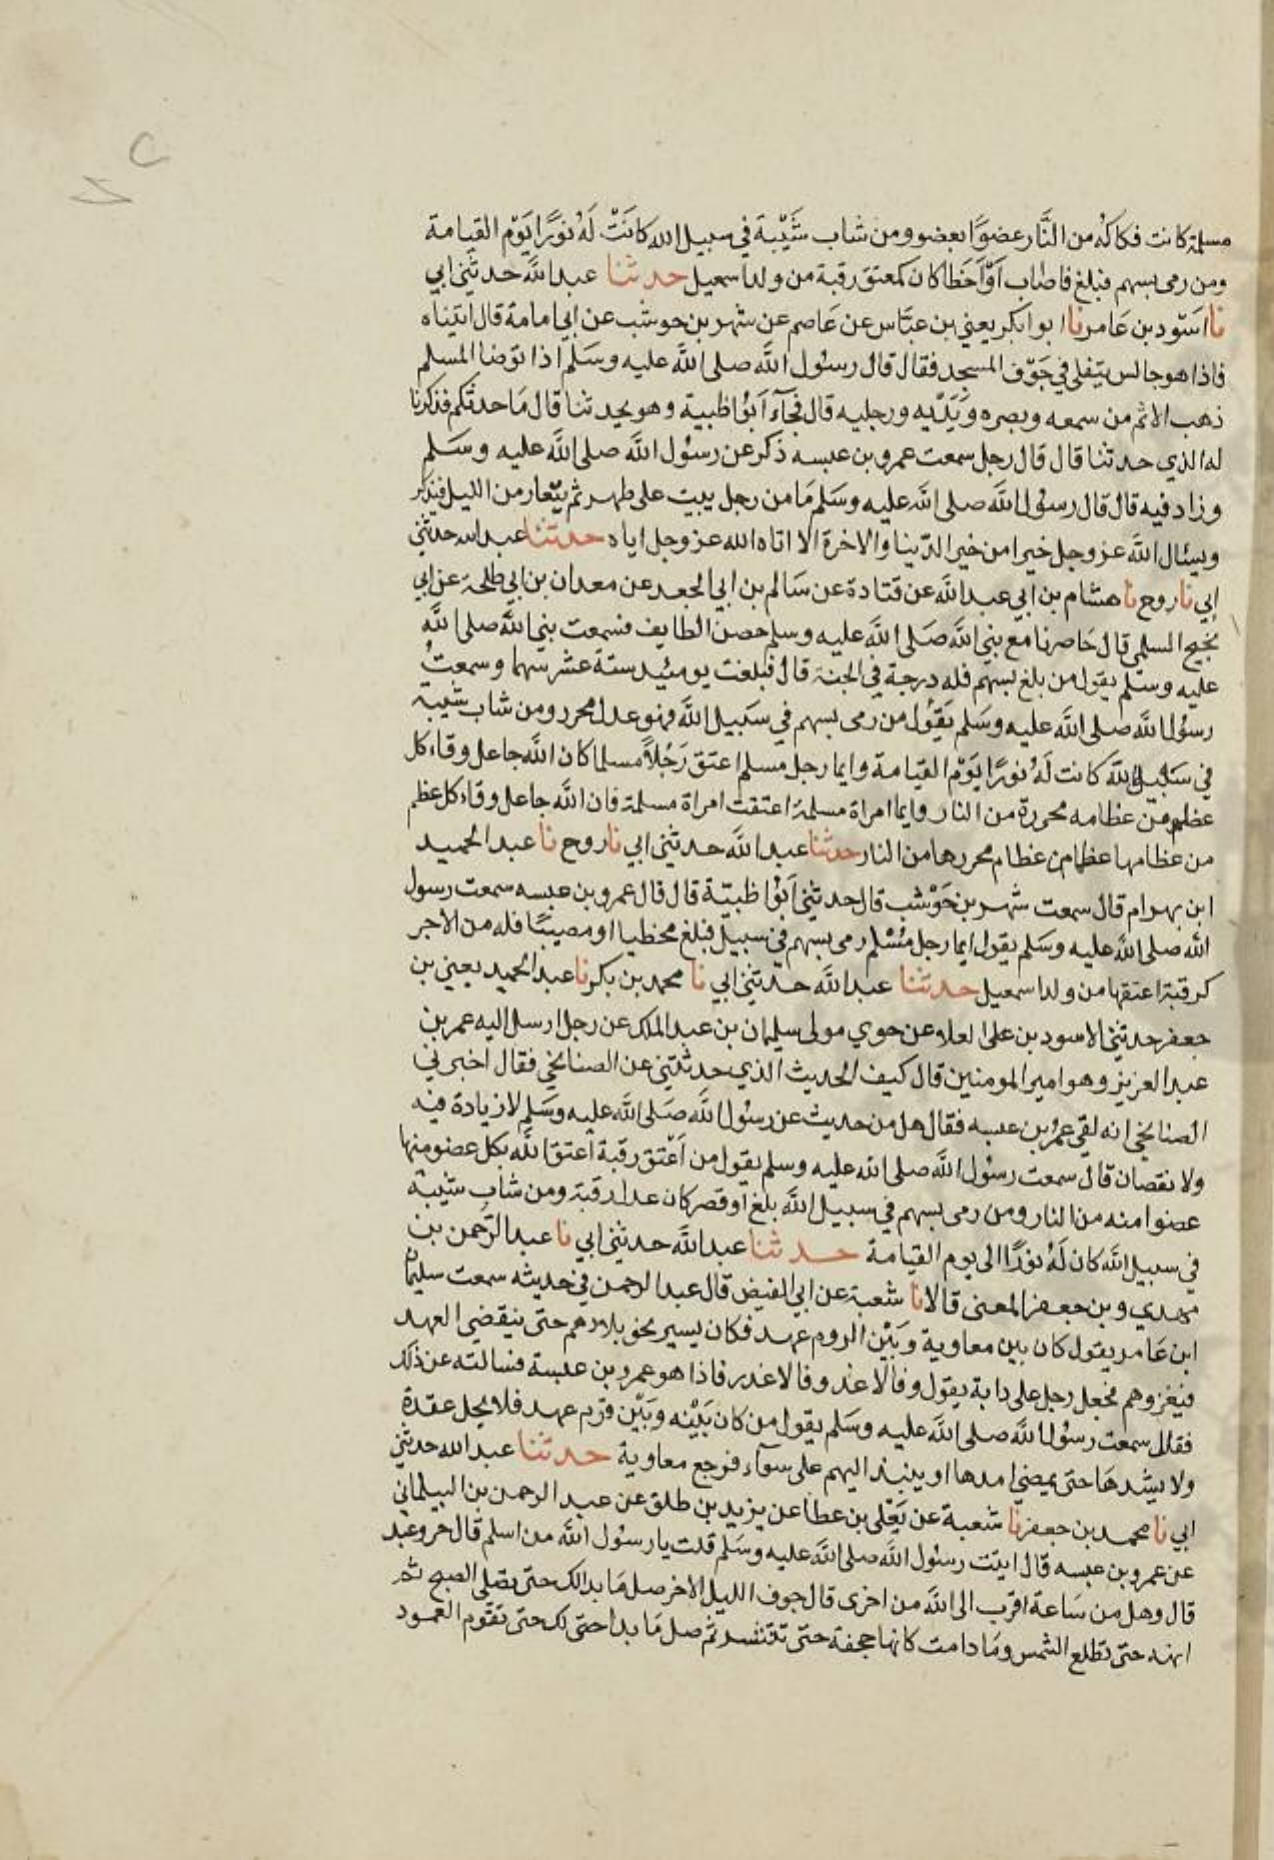 مسلمة كانت فكاكه من النَّار عضوًا بعضو ومن شاب شَيْبة في سبيل الله كانَتْ لَهُ نورًا يَوْم القيامة
ومن رمى بسهم فبلغ فاصاب اَوْ اَخَطا كان كمعتق رقبة من ولد اسمعيل حدثنا عبد الله حدثني ابي
نا اسَود بن عَامر نا ابو ابكر يعني بن عبَّاس عن عَاصم عن شهر بن حوشب عن ابي امامة قال اتيناه
فاذا هو جالس يتفلى في جَوْف المسجد فقال قال رسول الله صلى الله عليه وسَلم اذا توضا المسلم
ذهب الاثم من سمعه وبصره وَيَدَيه ورجليه قال فجآء اَبوُ اظبية وهو يحدثنا قال مَا حدثكم فذكرنا
له الذي حدثنا قال قال رجل سمعت عمرو بن عبسه ذكر عن رسُول الله صلى الله عليه وسَلم
وزاد فيه قال قال رسُول الله صلى الله عليه وسَلم مَا من رجل يبيت على طهر ثم يتعار من الليل فيذكر
ويسئال الله عز وجل خيرا من خير الدّينا والاخرة الا اتاه الله عز وجل اياه حدثنا عبد الله حدثني
ابي نا روح نا هشام بن ابي عبد الله عن قتادة عن سَالم بن ابي الجعد عن معدان بن ابي طلحة عن ابي
نجيح السلمي قال حَاصرنا مع نبي الله صَلى الله عليه وسلم حصن الطايف فسمعت نبي الله صلى الله
عليه وسلم يقول من بلغ بسهم فله درجة في الجنة قال فبلغت يومئيد ستة عشر سهما وسمعتُ
رسُول الله صلى الله عليه وسَلم يَقوُل من رمى بسهم في سَبيل الله فهو عدل محرر ومن شاب شيبة
في سَبيل الله كانت لَهُ نورًا يَوْم القيامة وايما رجل مسلم اعتق رَجُلاً مسلما كان الله جاعل وقاء كل
عظم من عظامه محررة من النار وايما امراة مسلمة اعتقت امراة مسلمة فان الله جاعل وقاء كل عظم
من عظامها عظما من عظام محررها من النار حدثنا عبد الله حدثني ابي نا روح نا عبد الحميد
ابن بهرام قال سمعت شهر بن حَوْشب قال حدثني اَبوُ اظبيَة قال قال عمرو بن عبسه سمعت رسول
الله صلى الله عليه وسَلم يقول ايما رجل مُسْلم رمى بسهم في سبيل فبلغ مخطيا او مصيبًا فله من الاجر
كرقبة اعتقها من ولد اسمعيل حدثنا عبد الله حدثني ابي نا محمد بن بكر نا عبد الحميد يعني بن
جعفر حدثني الاسود بن على العلاء عن حوي مولى سليمان بن عبد الملك عن رجل ارسل اليه عمر بن
عبد العزيز وهو امير المومنين قال كيف الحديث الذي حدثتني عن الصنابحي فقال اخبرني
الصنابحي انه لقي عمر بن عبسه فقال هل من حديث عن رسُول الله صَلى الله عليه وسَلم لا زيادة فيه
ولا نقصان قال سمعت رسُول الله صلى الله عليه وسلم يقول من اَعْتق رقبة اعتق الله بكل عضو منها
عضوا منه من النار ومن رمى بسهم في سبيل الله بلغ او قصر كان عدل رقبة ومن شاب شيبة
في سبيل الله كان لَهُ نورًا الى يوم القيامة حدثنا عبد الله حدثني ابي نا عبد الرَّحمن بن
مهدي وبن جعفر المعنى قالا نا شعبة عن ابي الفيض قال عبد الرحمن في حديثه سمعت سليمان
ابن عَامر يقول كان بين معاوية وبَيْن الروم عهد فكان يسير نحو بلادهم حتى ينقضي العهد
فيغزوهم فجعل رجل على دابة يقول وفا لا غدر وفا لا غدر فاذا هو عمرو بن عبسة فسالته عن ذلك
فقال سمعت رسُول الله صلى الله عليه وسَلم يقول من كان بَيْنه وبَيْن قوم عهد فلا يحل عقدة
ولا يشدهَا حتى يمضي امدها او ينبذ اليهم على سوآء فرجع معاوية حدثنا عبد الله حدثني
ابي نا محمد بن جعفر نا شعبة عن يَعْلى بن عطا عن يزيد بن طلق عن عبد الرحمن بن البيلماني
عن عمرو بن عبسه قال اتيت رسُول الله صلى الله عليه وسَلم قلت يا رسُول الله من اسلم قال حر وعبد
قال وهل من سَاعة اقرب الى الله من اخرى قال جوف الليل الاخر صل مَا بدا لك حتى تصلى الصبح ثم
انهه حتى تطلع الشمس ومَا دامت كانها حجفة حتى تنتشد ثم صل مَا بدا حتى لك حتى تقوم العمود